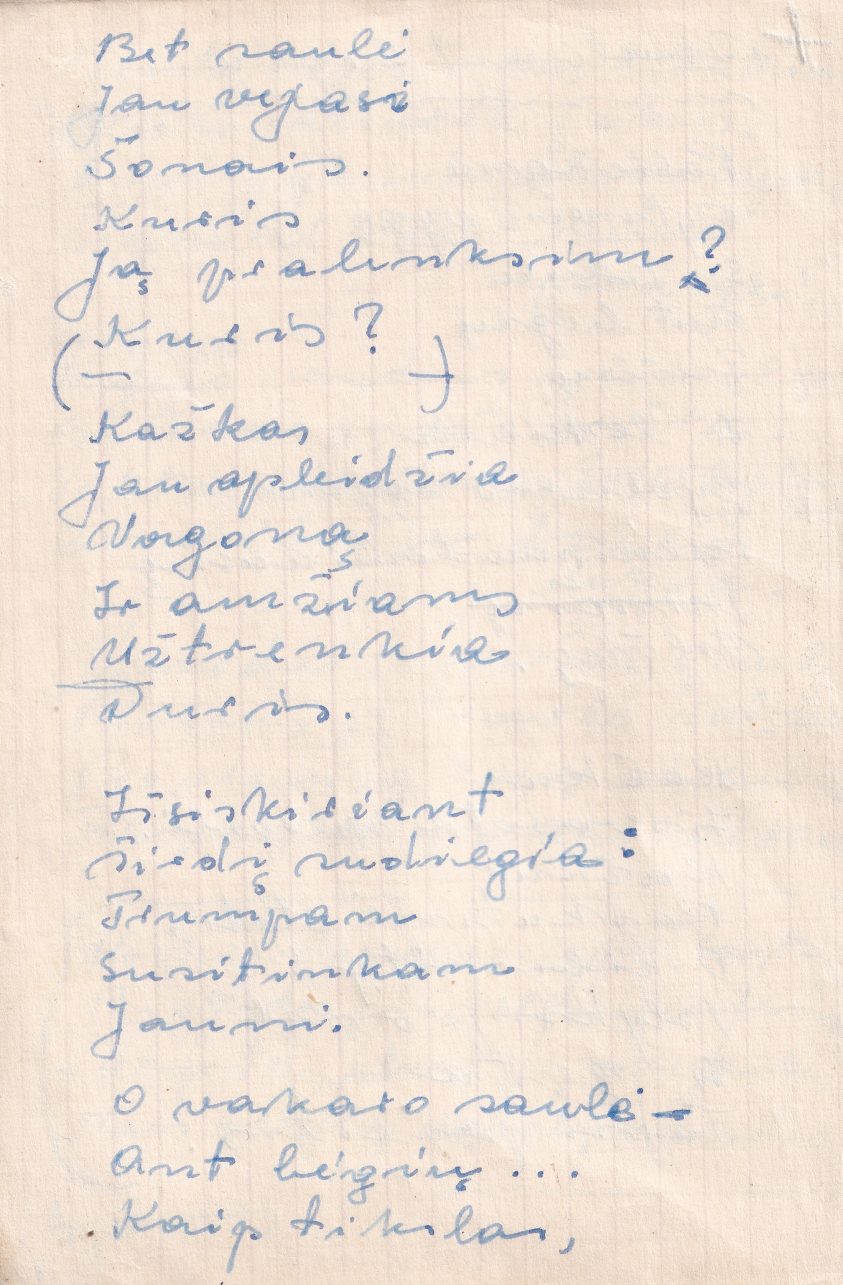 Bet saulė
Jau vejasi
Šonais.
Kuris
Ją pralenksim?
Kuris?
(— —)
Kažkas
Jau apleidžia
Vagoną
Ir amžiams
Užtrenkia
Duris.
Išsiskiriant
Širdį nudiegia:
Trumpam
Susitinkam
Jauni.
O vakaro saulė –
Ant bėgių...
Kaip tikslas,